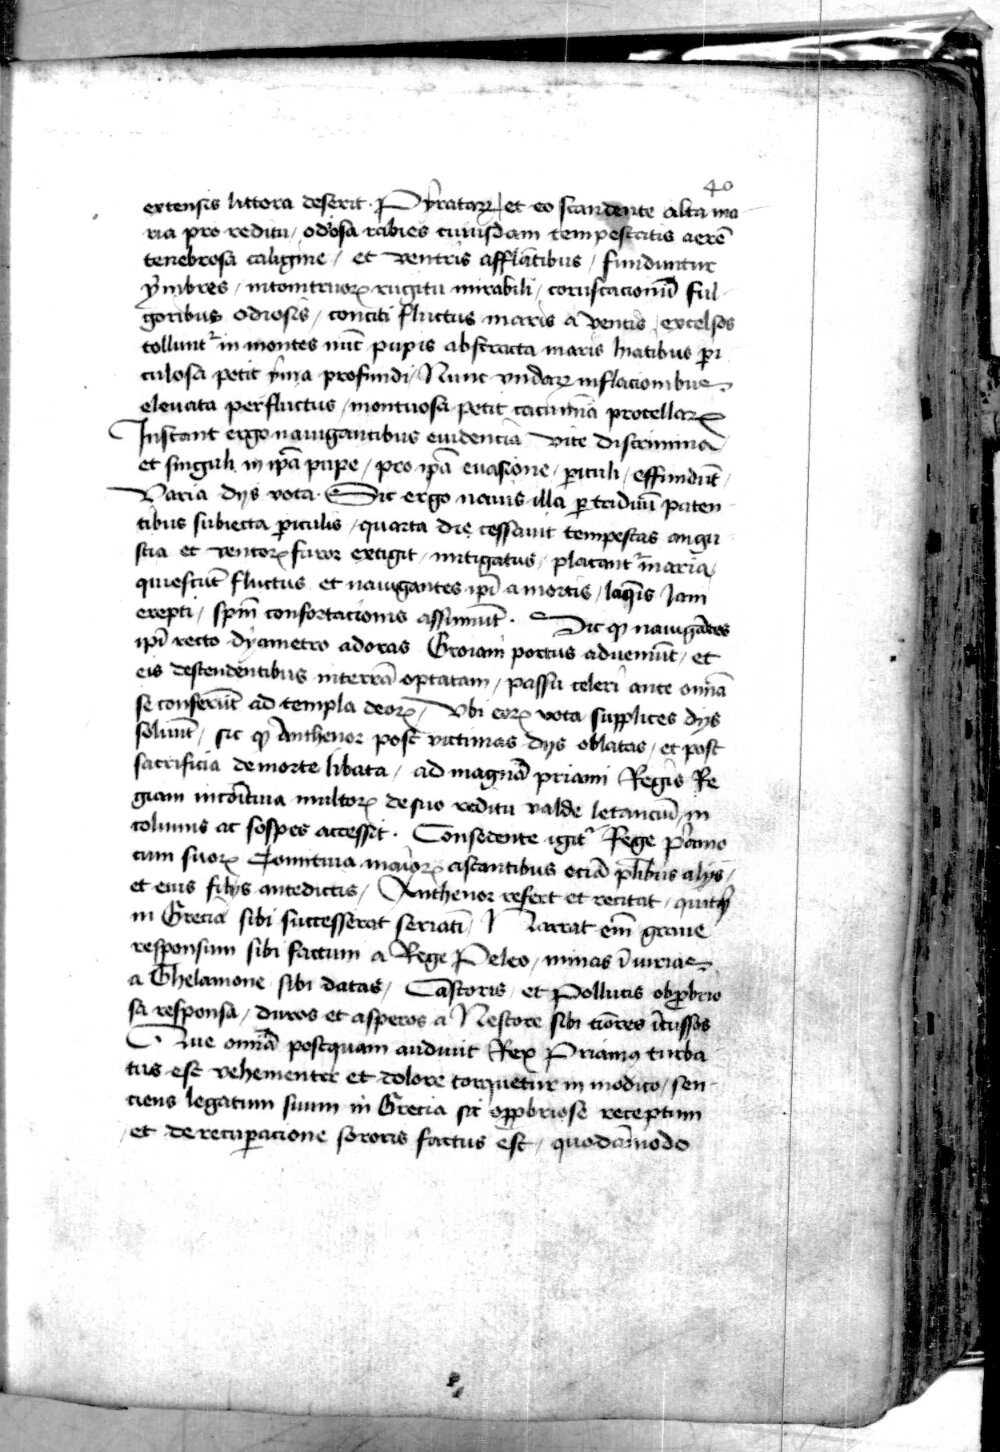 40
extensis littora deserit. Pyratarꝝ et eo scandente alta ma
ria pro reditu / odiosa rabies cuiusdam tempestatis aerē
tenebrosa caligine / et ventris afflātibus / funduntur
ymbres / intonitruorꝝ rugitu mirabili / coruscacionū ful-
goribus odiosis / conciti fluctus maris a ventis / excelsos
tolluntᷣ in montes nūc pupis abstracta maris hiatibus ꝑi
culosa petit yma profundi / Nunc vndarꝝ inflacionibus
eleuata perfluctus / montuosa petit cacumīa procellarꝝ
Instant ergo nauigantibus euidencia vite discrimina
et singuli in ip̄a pupe / pro ip̄a euasione / ꝑiculi / effundūt /
Varia dijs vota. Sic ergo nauis illa ꝑ triduū paten-
tibus subiecta ꝑiculis / quarta die cessauit tempestas angu
stia et ventorꝝ furor extigit / mitigatus / placantᷣ maria /
quiescūt fluctus et nauigantes ip̄i a mortis / laq̄is Iam
erepti / sp̄m confortacionis assumūt. Sic ꝙ nauigātes
ip̄i recto dyametro adoras Troiam portus adueniūt / et
eis descendentibus interrā optatam / passu celeri ante omīa
se conferūt ad templa deorꝝ / Vbi eorꝝ vota supplices dijs
soluūt / sic ꝙ Anthenor post victimas dijs oblatas / et post
sacrificia demorte libata / ad magnā priami Regis Re
giam incōitiua multorꝝ de suo reditu valde letanciū in
columis ac sospes accessit. Consedente igitᷣ Rege p̄amo
cum suorꝝ Comitiua maiorꝝ astantibus eciā pl̄ibus alijs /
et eius filijs antedictis / Anthenor refert et recitat / quitꝗ
in Grecia sibi successerat seriatī / Narrat em̄ graue
responsum sibi factum a Rege Peleo / minas iniuriae
a Thelamone sibi datas / Castoris / et Pollucis obꝓbrio
sa responsa / duros et asperos a Nestore sibi t̄iōres īcussos
Que omīa postquam audiuit Rex Priamꝰ turba
tus est vehementer et dolore torquetur in modico / sen-
ciens legatum suum in Grecia sic oꝓbriose receptum
et de recuꝑacione sororis factus est / quodāmodo